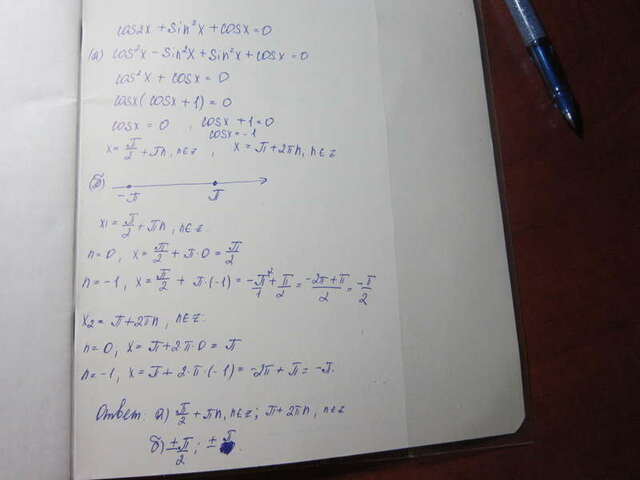 cos2x + sin²x + cosx = 0
(а) cos²x - sin²x + sin²x + cosx = 0
cos²x + cosx = 0
cosx(cosx + 1) = 0
cosx = 0 , cosx + 1 = 0
cosx = -1
x = π/2 + πn, n∈z , x = π + 2πn, n∈z
(б) -π π
x₁ = π/2 + πn, n∈z.
n = 0, x = π/2 + π·0 = π/2
n = -1, x = π/2 + π·(-1) = -π/1 + π/2 = -2π+π/2 = -π/2
x₂ = π + 2πn, n∈z.
n = 0, x = π + 2π·0 = π
n = -1, x = π + 2·π·(-1) = -2π + π = -π.
Ответ: а) π/2 + πn, n∈z; π + 2πn, n∈z
б) ±π/2; ±π.